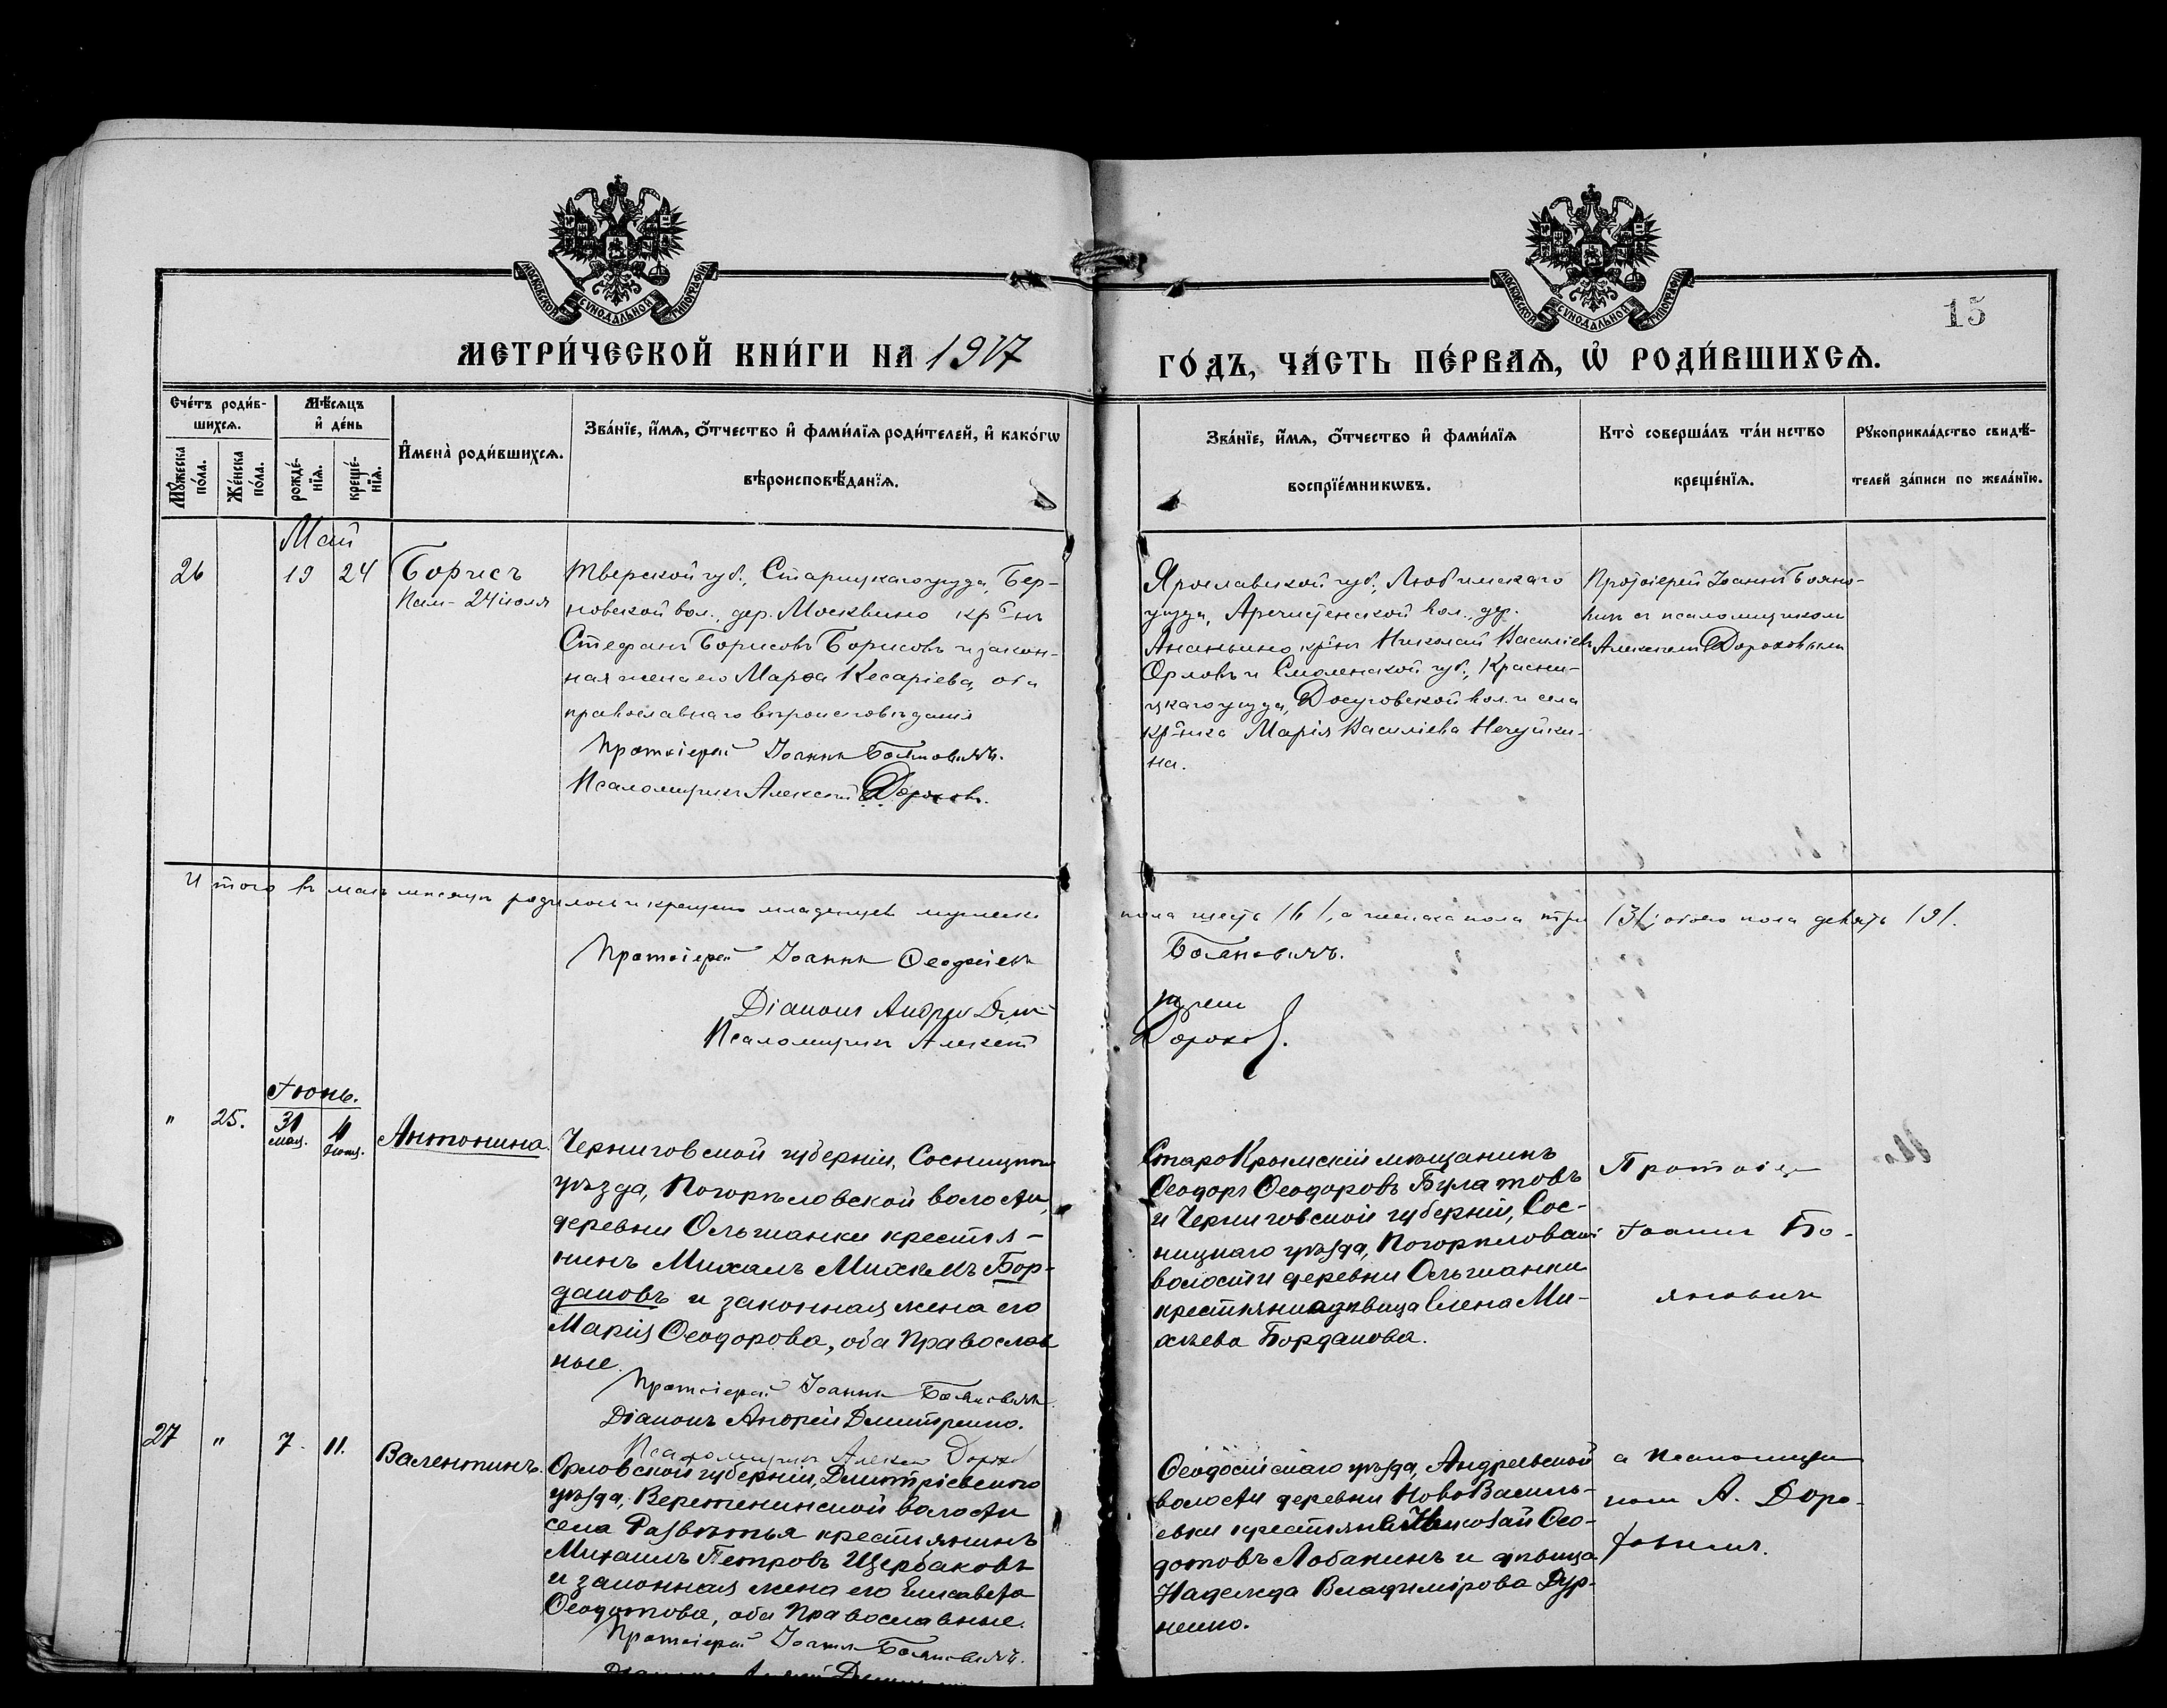 МОСКОВСКОЙ СУНОДАЛЬНОЙ ТИПОГРАФІИ
МОСКОВСКОЙ СУНОДАЛЬНОЙ ТИПОГРАФІИ
15
МЕТРИ́ЧЕСКОЙ КНИ́ГИ НА 1917
ГО́ДЪ, ЧА́СТЬ ПЕ́РВАѦ, Ѡ҆ РОДИ́ВШИХСѦ.
Сче́тъ роди́в-
шихсѧ.
Мѣ́сѧцъ
и҆ де́нь
Мꙋ́жеска
по́ла.
Же́нска
по́ла.
рожде́-
нїѧ.
креще́-
нїѧ.
И҆мена̀ роди́вшихсѧ.
Зва́нїе, и҆́мѧ, о҆́тчество и҆ фами́лїѧ роди́телей, и҆ како́гѡ
вѣроисповѣ́данїѧ.
Зва́нїе, и҆́мѧ, о҆́тчество и҆ фами́лїѧ
воспрїе́мникѡвъ.
Кто̀ соверша́лъ та́инство
креще́нїѧ.
Рꙋкоприкла́дство свидѣ́-
телей за́писи по жела́нїю.
Май
26
19
24
Борисъ
Пам- 24 іюля
Тверской губ., Старицкаго уѣзда, Бер-
новской вол., дер. Москвино кр-нъ
Стефанъ Борисовъ Борисовъ и закон-
ная жена его Марѳа Кесаріева, оба
православнаго вѣроисповѣданія
Протоіерей Іоаннъ Бояновичъ.
Псаломщикъ Алексѣй Дороховъ.
Ярославской губ., Любимскаго
уѣзда, вол., дер.
Ананьино кр-нъ Николай Васильевъ
Орловъ и Смоленской губ., Красни-
цкаго уѣзда, Досуговской вол. и села
кр-нка Марія Васильева Нечуйки-
на.
Протоіерей Іоаннъ Бояно-
вичъ съ псаломщикомъ
Алексѣемъ Дороховымъ
Итого въ маѣ мѣсяцѣ родилось и крещено младенцевъ мужеска
пола шесть /6/, а женска пола три /3/; обоего пола девять /9/.
Протоіерей Іоаннъ Ѳеофиловъ
Бояновичъ.
Діаконъ Андрей Дмит
ренко
Псаломщикъ Алексѣй
Дороховъ.
Іюнь.
"
25.
31
мая.
4
Іюня.
Антонина.
Черниговской губерніи, Сосницкаго
уѣзда, Погорѣловской волости,
деревни Ольшанки крестья-
нинъ Михаилъ Михѣевъ Бор-
дановъ и законная жена его
Марія Ѳеодорова, оба Православ
ные.
Протоіерей Іоаннъ Бояновичъ.
Діаконъ Андрей Дмитренко.
Псаломщикъ Алексѣй Дорохо
СтароКрымскій мѣщанинъ
Ѳеодоръ Ѳеодоровъ Булатовъ
и Черниговской губерніи, Сос-
ницкаго уѣзда, Погорѣловской
волости деревни Ольшанки
крестьянина дѣвица Елена Ми-
хѣева Борданова.
Протоіер
Іоаннъ Бо-
яновичъ
27
"
7.
11.
Валентинъ.
Орловской губерніи, Дмитріевскаго
уѣзда, Веретенинской волости
села Развѣтья крестьянинъ
Михаилъ Петровъ Щербаковъ
и законная жена его Елисавета
Ѳеодотова, оба Православные.
Протоіерей Іоаннъ Бояновичъ.
Ѳеодосійскаго уѣзда, Андреевской
волости деревни НовоВасиль-
евки крестьянинъ Николай Ѳео-
дотовъ Лобакинъ и дѣвица
Надежда Владимірова Дур-
ненко.
а Псаломщи
комъ А. Доро-
ховымъ.